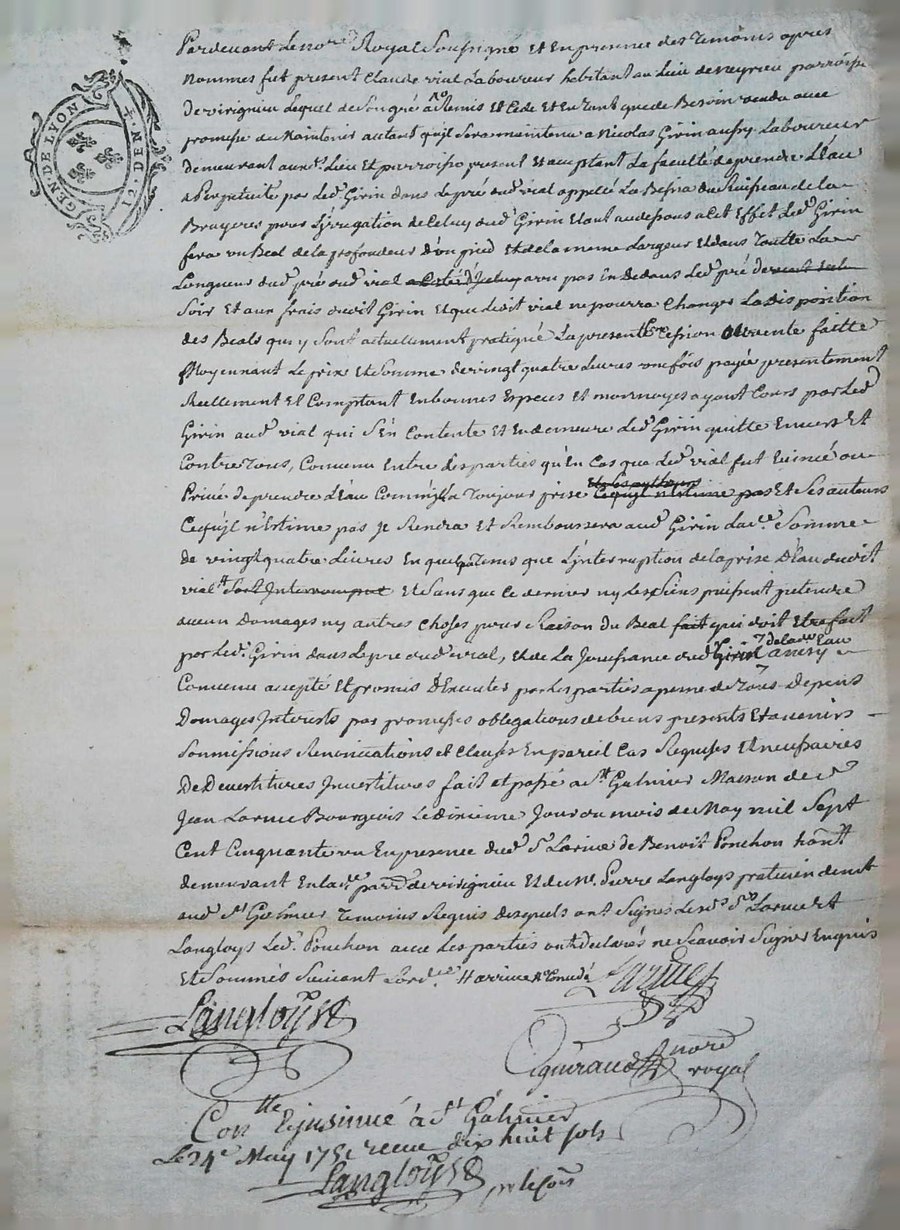 GEN. DE LYON
12 DEN.
Pardevant Le no.re Royal Soussigné et En presence des Temoins apres
Nommes fut present Claude vial Laboureur habitant au Lieu de veyrieu parroisse
de virignieu Lequel de Son gré a Remis et Cede et En tant que de Besoin vendu avec
promesse de Maintenir autant quil Sera maintenu a Nicolas Girin aussy Laboureur
demeurant aud. Lieu et parroisse present et acceptant La faculté de prendre L'Eau
a Perpetuité par led. Girin dans Le pré dud vial appellé La du Ruisseau de la
Bruyeres pour L'irrigation de Celuy dud Girin Etant au desous a Cet Effet Led. Girin
fera un Beal de la profondeur d'un pied et de la meme Largeur et dans Toutte La
Longueur dud pré dud vial un pas En dedans Led. pré
Soir et aux frais dudit Girin et que ledit vial ne pourra Changer La disposition
des Beals qui y Sont actuellement pratiqué La presente Cession vente faitte
Moyennant Le prix et Somme de vingt quatre Livres une fois payée presentement
Reellement et Comptant En bonnes Especes et monnoyes ayant Cours par Led
Girin aud vial qui s'En Contente et En demeure Led Girin quitte Envers Et
Contre Tous, Convenu Entre les parties qu'En Cas que Led vial fut Evincé ou
Privé de prendre L'Eau Comme il La Toujour prise Ce quil n'Estime pas Et Ses auteurs
Ce quil n'Estime pas Je Rendra et Remboursera aud Girin Lad.e Somme
de vingt quatre Livres En quelq Tems que L'ynterruption de la prise d'Eau dudit
vial Soit Interrompue et Sans que Ce dernier ny Les Siens puissent pretendre
aucun Domages ny autres Choses pour Raison du Beal fait qui doit Etre fait
par Led. Girin dans Le pre dud vial, et de La Jouissance dud Girin de lad Eau ainsy
Convenu accepté Et promis d'Executer par les parties a peine de Tous Depens
Domages Interests par promesses obligations de biens presents Et avenirs
Soumissions Renonciations et Clauses En pareil Cas Requises Et necessaires
De Devestitures Jnvestitures fait et passé a St Galmier Maison de Sr
Jean Larme Bourgeois Le dixieme Jour du mois de May mil Sept
Cent Cinquante un En presence dud Sr Larme de Benoit Ponchon
demeurant En lad. parr. de virignieu Et de Me. Pierre Langloys praticien demt
aud St Galmier Temoins Requis desquels ont Signés Lesd Srs Larme et
Langloys Led. Ponchon avec Les parties ont declarés ne Scavoir Signer Enquis
Et Sommés Suivant L'ord.ce
Larme
Langloys
nore
royal
Conlle Et jnsinué à St Galmier
Le 24e May 1751 receu dix huit sols
Langloys